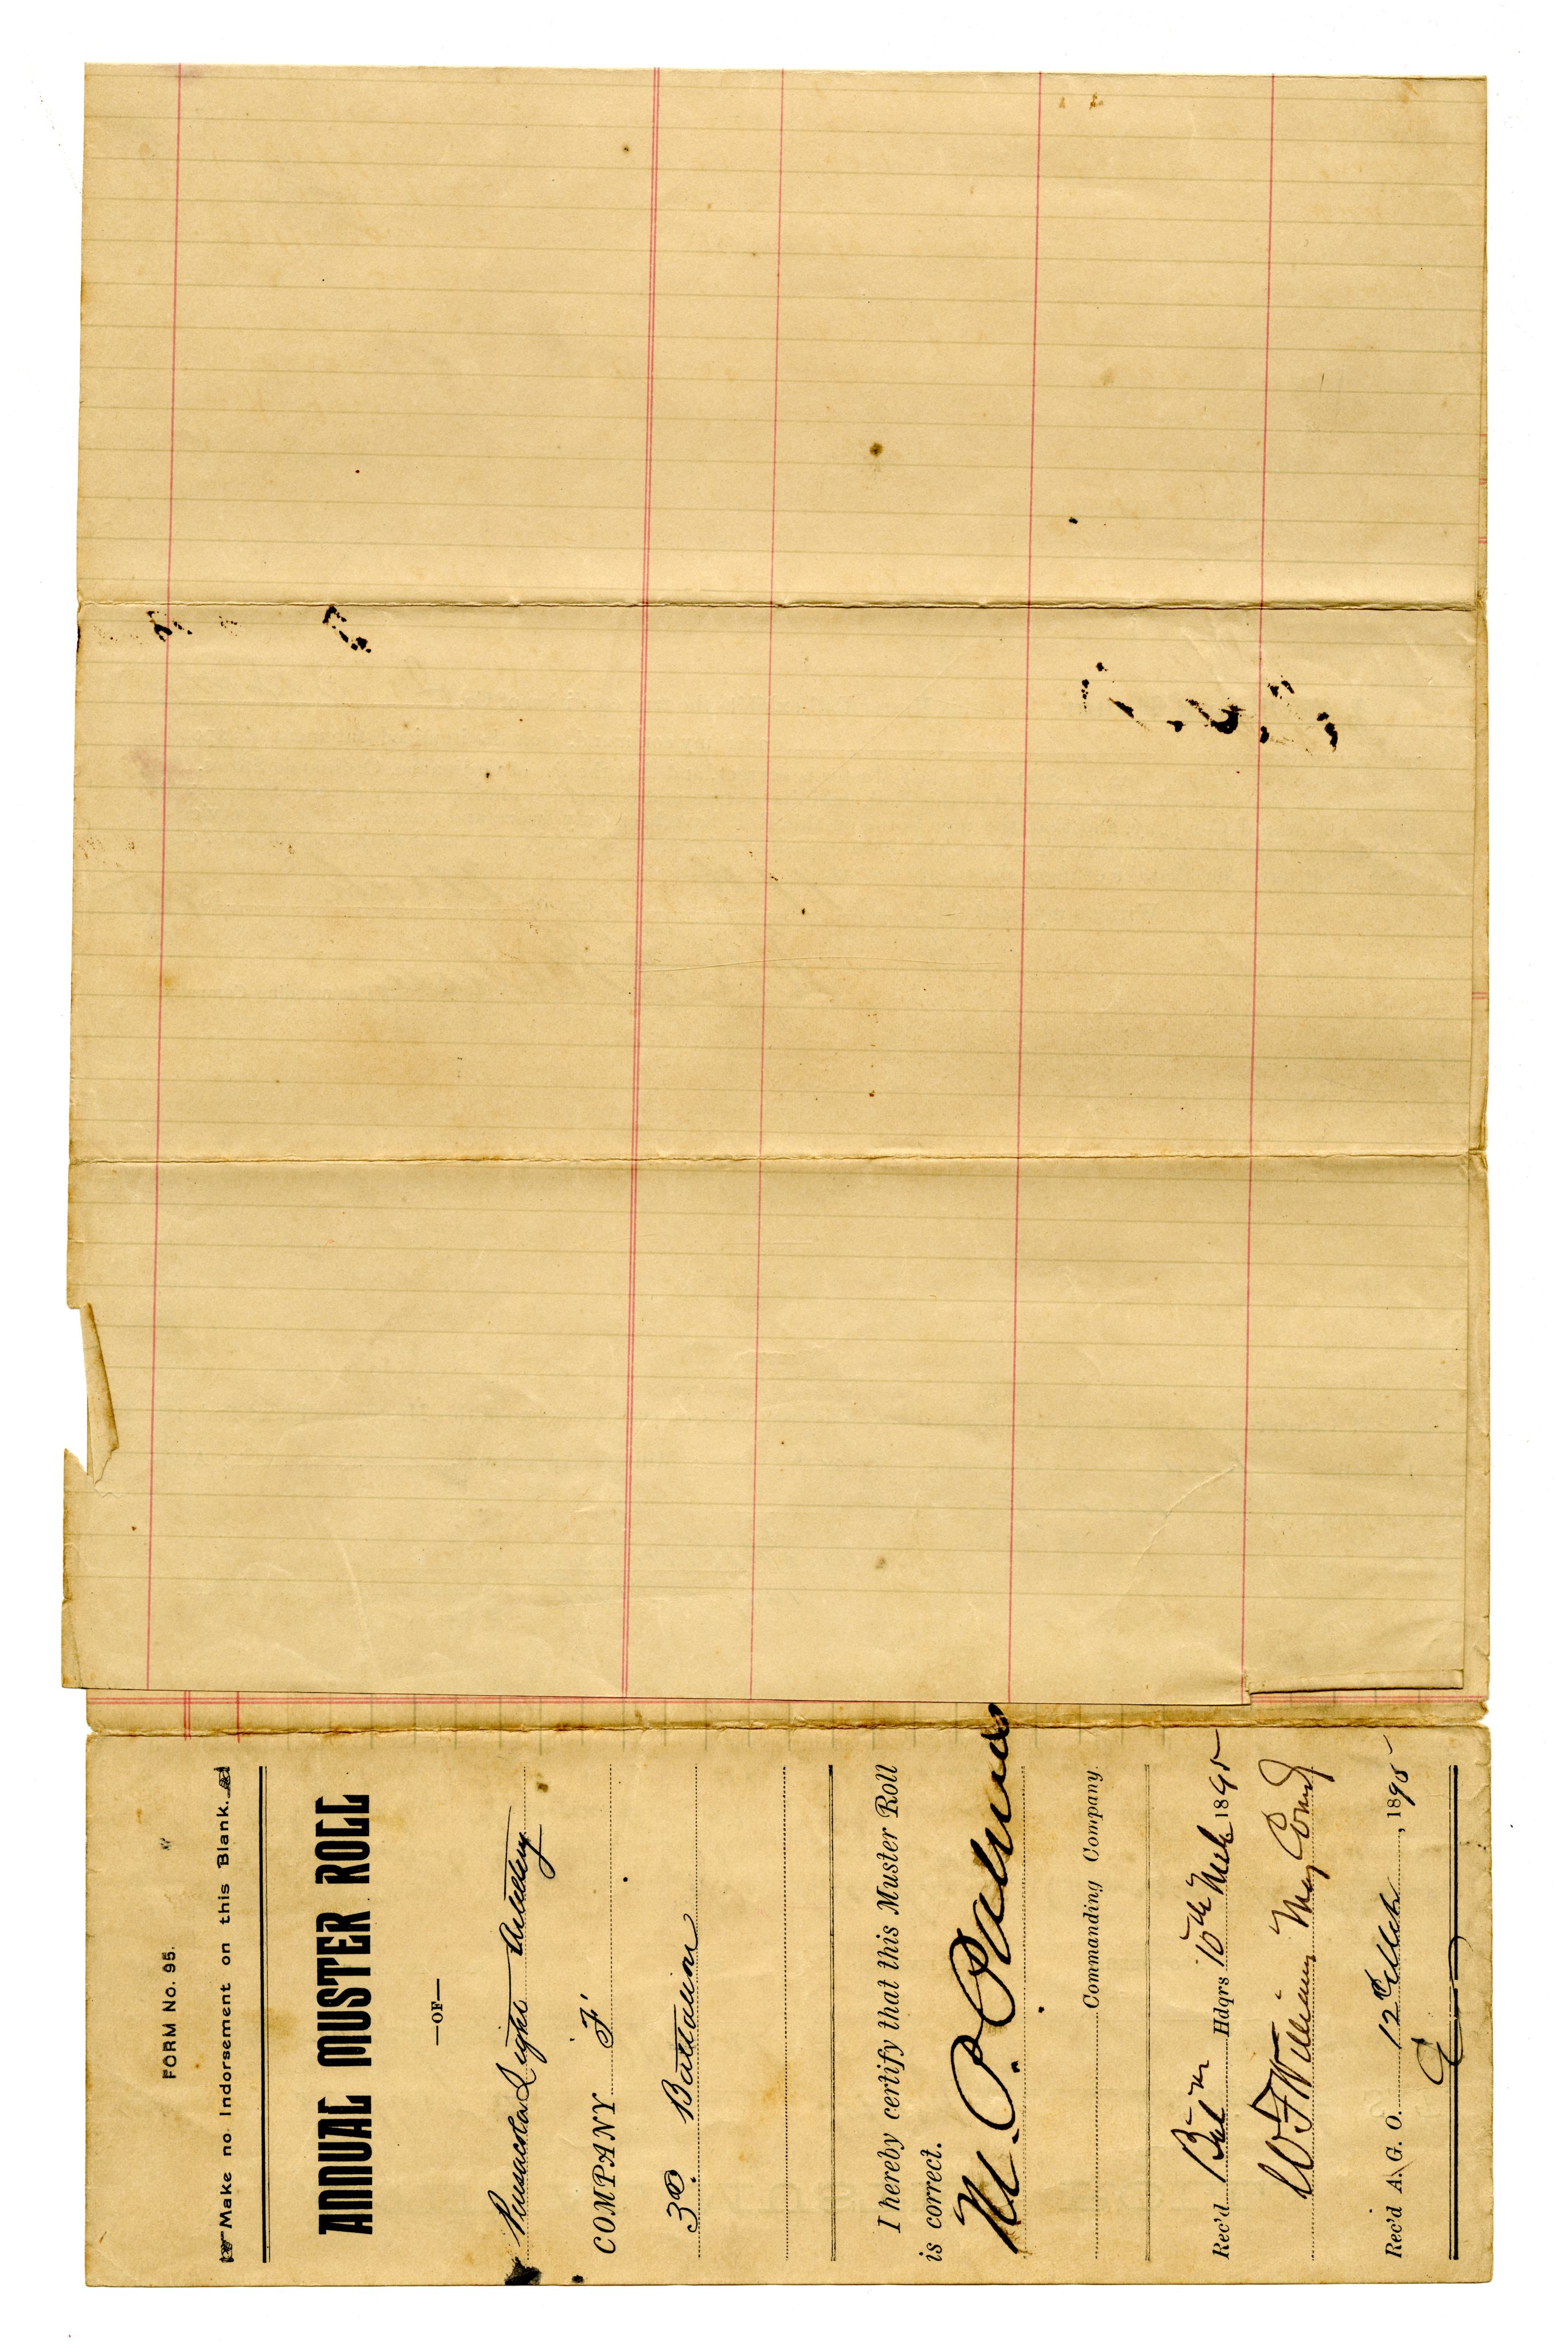 FORM No. 95.
Make no Indorsement on this Blank.
ANNUAL MUSTER ROLL
—OF—
Pensacola Light Artillery
COMPANY 'F'
3D. Battalion
I hereby certify that this Muster Roll
is correct.
Commanding Company
Rec'd Hdqrs 10th Mch 1895
W F Williams Maj Comdg
Rec'd A. G. O. 12th Mch, 1895